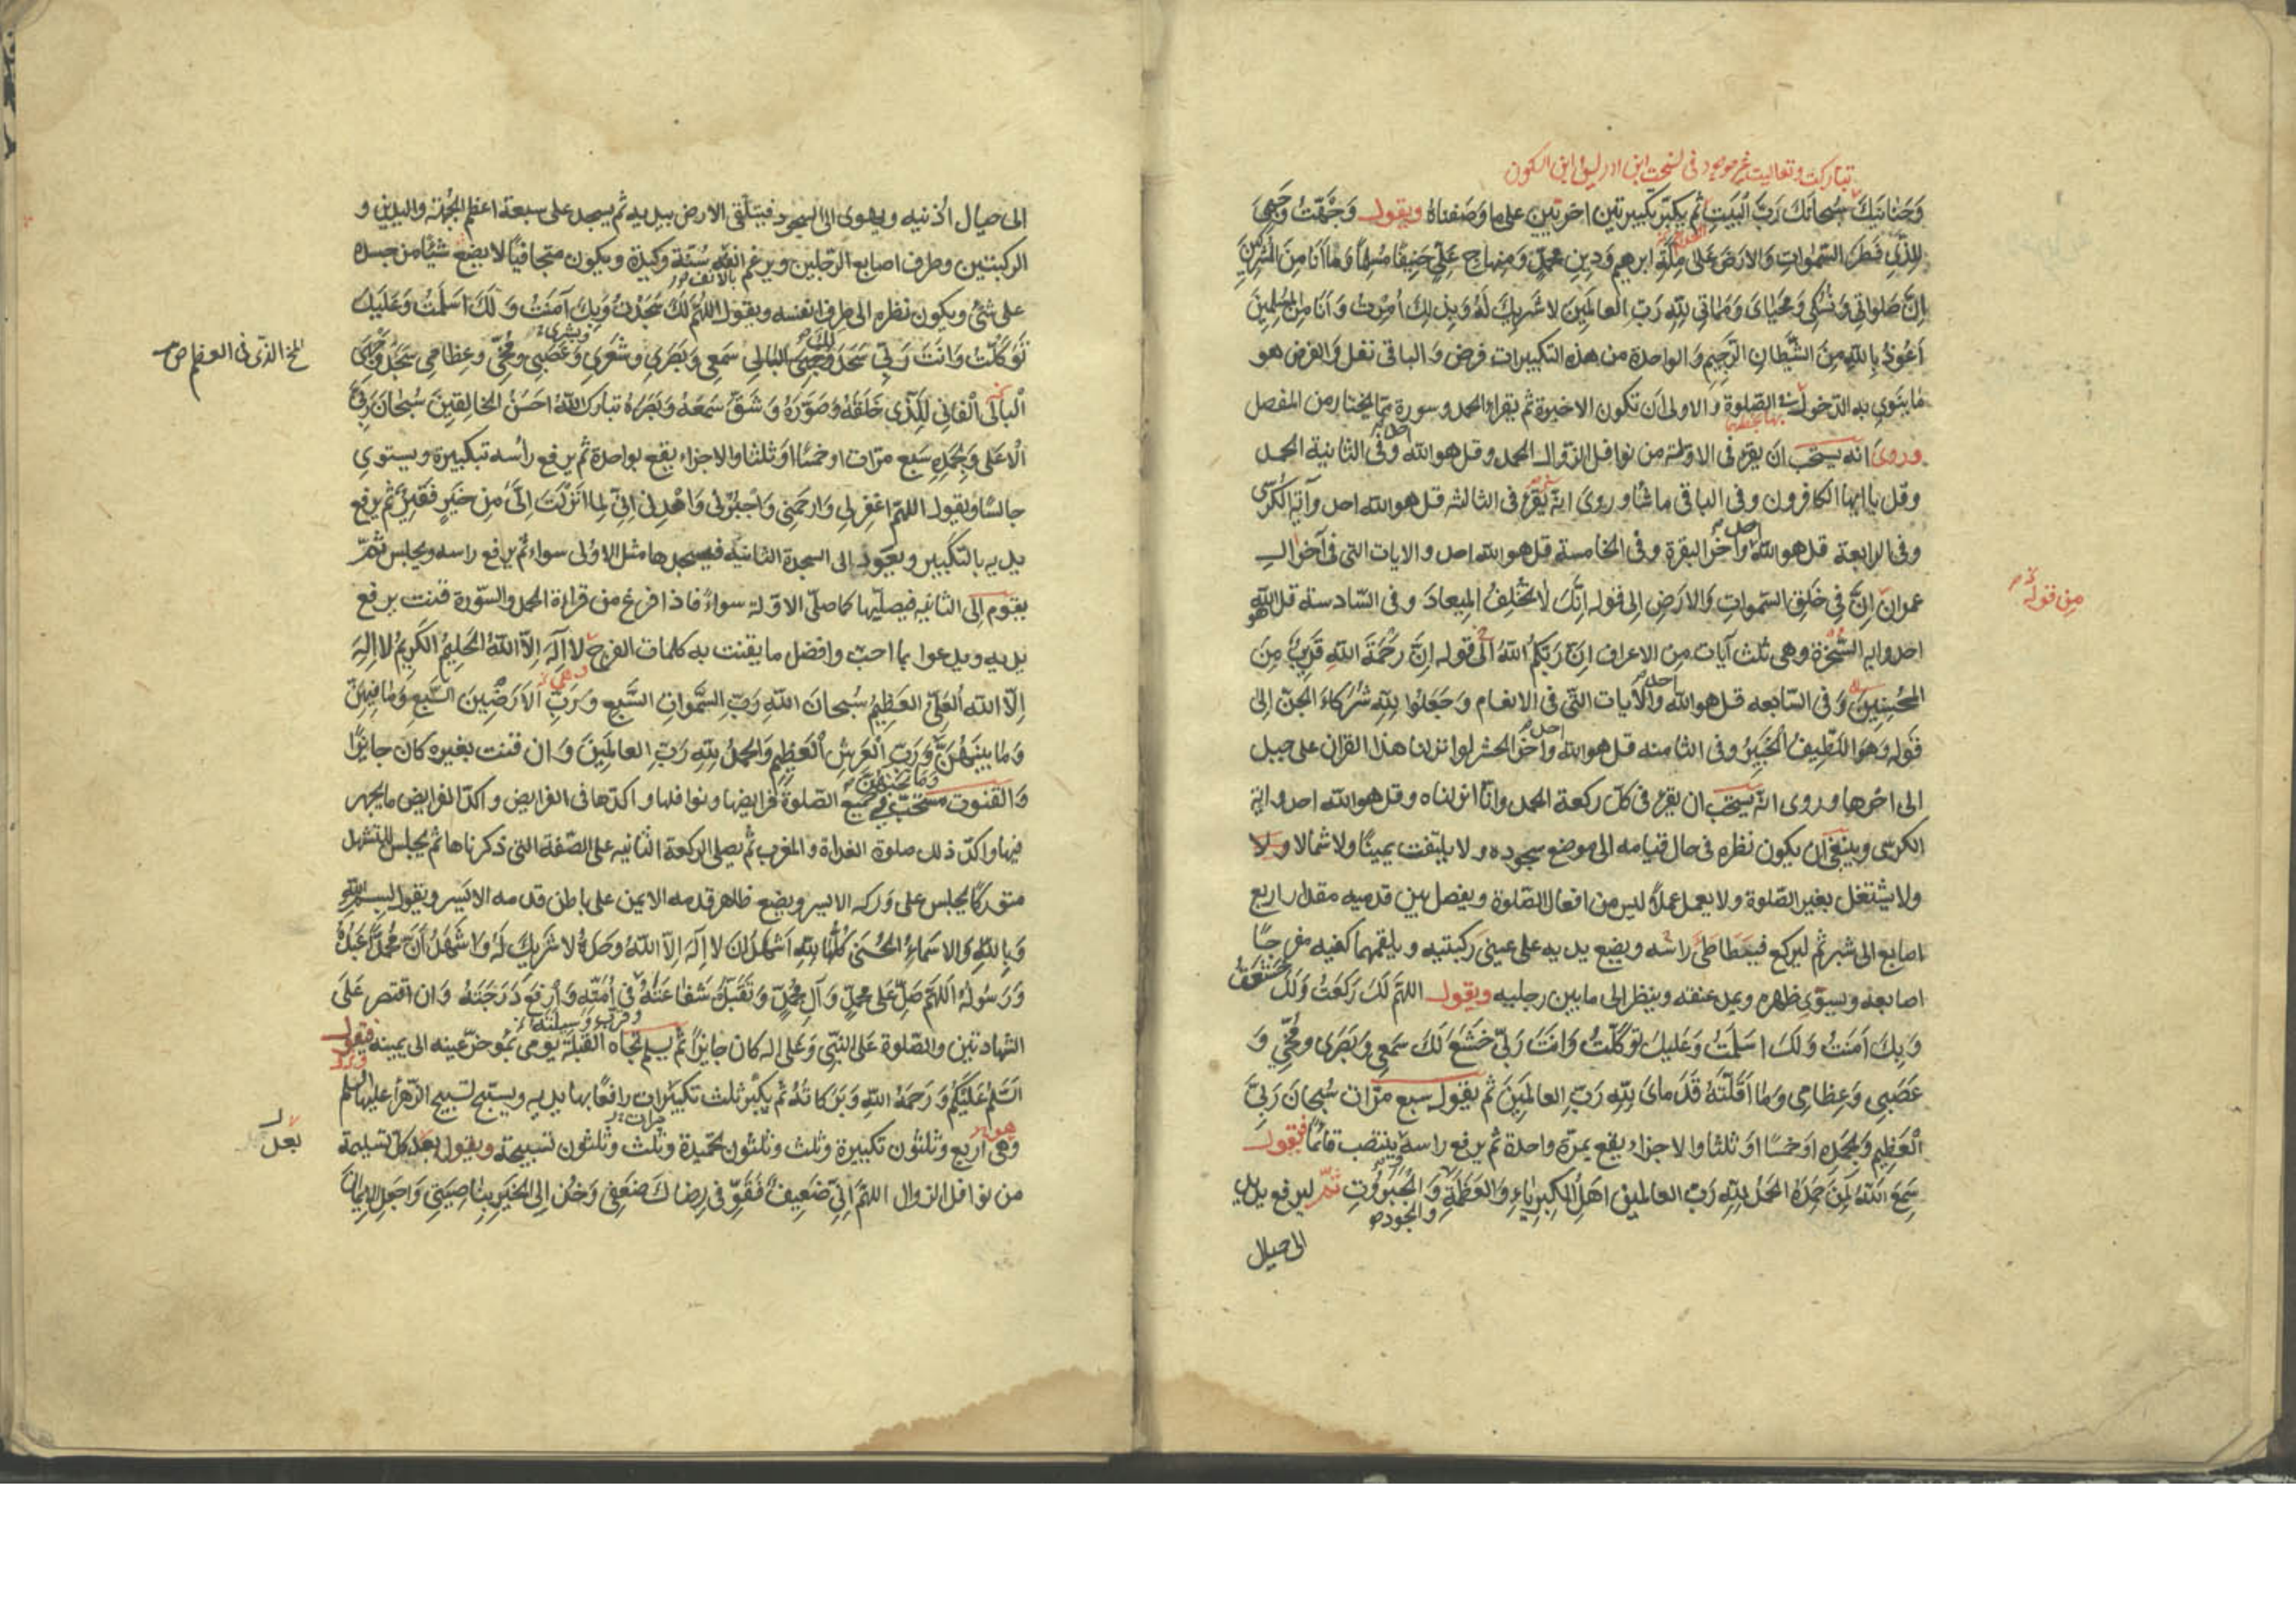 تباركت وتعاليت غير موجود في نسخت ابن ادريس وابن السكون
وَحَنانَيكَ سُبحانَكَ رَبَّ البَيتِ ثم يكبّر تكبيرتين اخرَيَين على ما وصفناهُ ويقول وَجَّهتُ وَجهِيَ
لِلَّذي فَطَرَ السَّمواتِ وَالارضَ عَلى مِلَّةِ ابرهيم وَدينِ مُحمدٍ وَمِنهاجِ عَلِيٍّ حَنيفًا مُسلِمًا وَما اَنَا مِنَ المُشرِكينَ
اِنَّ صَلواتي وَنُسُكي وَمَحيايَ وَمَماتي لِلّهِ رَبِّ العالَمينَ لا شَريكَ لَهُ وَبِذلِكَ اُمِرتُ وَاَنَا مِنَ المُسلِمينَ
اَعُوذُ بِاللهِ مِنَ الشَّيطانِ الرَّجيمِ وَالواحدة من هذه التكبيرات فرض وَالباقى نفل وَالفرض هو
ما ينوي به الدّخول في الصّلوة والاولى ان تكون الاخيرة ثم يقرا الحمد وسورة مما يختار من المفصل
وروى انه يستحب ان يقرء فى الاولة من نوافل الزوال الحمد وقل هو الله وفى الثانية الحمد
وقل يا ايها الكافرون وفى الباقى ما شاء وروى انّه يقرء فى الثالثه قل هو الله احد وآية الكرسى
وفى الرابعة قل هو الله وآخر البقرة وفى الخامسة قل هو الله احد والايات التى فى آخر ال
من قوله
عمران اِنَّ فى خَلقِ السَّمواتِ وَالارضِ الى قوله اِنَّكَ لا تُخلِفُ المِيعادَ وفى السّادسة قل هو الله
احد واية السُّخرة وهى ثلث آيات من الاعراف اِنَّ رَبَّكُمُ اللهُ الى قوله اِنَّ رَحمَةَ اللهِ قَريبٌ مِنَ
المُحسِنينَ وَفى السّابعه قل هو الله والآيات التّى فى الانعام وَجَعَلُوا لِلّهِ شُرَكاءَ الجِنَّ اِلى
قوله وَهُوَ اللَّطيفُ الخَبيرُ وفى الثامنه قل هو الله وآخر الحشر لو انزلنا هذا القران على جبل
الى اخرها وروى انّه يستحب ان يقرء فى كلّ ركعة الحمد وانّا انزلناه وقل هو الله احد واية
الكرسى وينبغى ان يكون نظره فى حال قيامه الى موضع سجوده ولا يلتفت يمينًا ولا شمالا ولا
ولا يشتغل بغير الصّلوة ولا يعمل عملاً ليس من افعال الصّلوة ويفصل بين قدميه مقدار اربع
اصابع الى شبر ثم ليركع فيطأطئ رأسه ويضع يديه على عينى ركبتيه ويلقمهما كفيه مفرجًا
اصابعه ويسوّى ظهره ويمد عنقه وينظر الى ما بين رجليه ويقول اللهُمَّ لَكَ رَكَعتُ وَلَكَ خَشَعتُ
وَبِكَ آمَنتُ وَلَكَ اَسلَمتُ وَعَلَيكَ تَوَكَّلتُ وَاَنتَ رَبّي خَشَعَ لَكَ سَمعي وَبَصَري وَمُخّي وَ
عَصَبي وَعِظامي وَما اَقَلَّتهُ قَدَمايَ لِلّهِ رَبِّ العالَمينَ ثم يقول سبع مرّات سُبحانَ رَبِّيَ
العَظيمِ وَبِحَمدِهِ او خمسًا او ثلثا والاجزاء يقع بمرّة واحدة ثم يرفع راسه وينتصب قائمًا فيقول
سَمِعَ اللهُ لِمَن حَمِدَهُ الحَمدُ لِلّهِ رَبِّ العالمين اَهلِ الكِبرِياءِ وَالعَظَمَةِ وَالجَبَرُوتِ ثمّ ليرفع يديه
والجود
الى حيال
الى حيال اذنيه ويهوى الى السجود فيتلقى الارض بيديه ثم يسجد على سبعة اعظم الجبهة واليدين و
الركبتين وطرف اصابع الرّجلين ويرغم انفه سُنّة وكيدة ويكون متجافيًا لا يضع شيئًا من جسده
بالانف
على شئ ويكون نظره الى طرف انفسه ويقول اللهُمَّ لَكَ سَجَدتُ وَبِكَ آمَنتُ وَلَكَ اَسلَمتُ وَعَلَيكَ
وبشرى
المخ الذى فى العظم ص
تَوَكَّلتُ وَاَنتَ رَبّي سَجَدَ لَكَ سَمعي وَبَصَري وَشَعَري وَعَصَبي وَمُخّي وعِظامي سَجَدَ وَجهِيَ
البالي الفاني لِلَّذي خَلَقَهُ وَصَوَّرَهُ وَشَقَّ سَمعَهُ وَبَصَرَهُ تَبارَكَ اللهُ اَحسَنُ الخالِقينَ سُبحانَ رَبِّيَ
الاَعلى وَبِحَمدِهِ سبع مرّات او خمسًا او ثلثا والاجزاء يقع بواحدة ثم يرفع رأسه بتكبيرة ويستوي
جالسًا ويقول اللهمّ اغفِر لي وَارحَمني وَاجبُرني وَاهدِني اِنّي لِما اَنزَلتَ اِلَيَّ مِن خَيرٍ فَقيرٌ ثم يرفع
يديه بالتكبير ويعود الى السجدة الثانية فيسجدها مثل الاولى سواء ثم يرفع راسه ويجلس ثمّ
يقوم الى الثانيه فيصلّيها كما صلّى الاوّلة سواءً فاذا فرغ من قراءة الحمد والسّورة قنت يرفع
يديه ويدعوا بما احبّ وافضل ما يقنت به كلمات الفرج لا اِلهَ اِلاَّ اللهُ الحَليمُ الكَريمُ لا اِلهَ
وهى
اِلاَّ اللهُ العَلِيُّ العَظيمُ سُبحانَ اللهِ رَبِّ السَّمواتِ السَّبعِ وَرَبِّ الاَرَضينَ السَّبعِ وَما فيهِنَّ
وَما بَينَهُنَّ وَرَبِّ العَرشِ العَظيمِ وَالحَمدُ لِلّهِ رَبِّ العالَمينَ وَان قنت بغيره كان جائزًا
وَما تَحتَهُنَّ
وَالقنوت مستحبّ فى جميع الصّلوة فرايضها ونوافلها واكدها فى الفرايض واكد الفرايض ما يجهر
فيها واكدّ ذلك صلوة الغداة والمغرب ثم يصلى الركعة الثانيه على الصّفة التى ذكرناها ثم يجلس للتشهد
متوركًا يجلس على وركه الايسر ويضع ظاهر قدمه الايمن على باطن قدمه الايسر ويقول بسم الله
وَبِاللهِ وَالاَسماءُ الحُسنى كُلُّها لِلّهِ اَشهَدُ اَن لا اِلهَ اِلاَّ اللهُ وَحدَهُ لا شَريكَ لَهُ وَاَشهَدُ اَنَّ مُحَمَّدًا عَبدُهُ
وَرَسُولُهُ اَللهُمَّ صَلِّ عَلى مُحَمَّدٍ وَآلِ مُحَمَّدٍ وَتَقَبَّل شَفاعَتَهُ في اُمَّتِهِ وَارفَع دَرَجَتَهُ وَان اقتصر عَلى
وقرّب وسيلته
الشهادتين والصّلوة عَلى النّبى وَعَلى اله كان جايزًا ثم يسلم تجاه القبلة يومى بمؤخر عينه الى يمينه فيقول
السَّلامُ عَلَيكُم وَرَحمَةُ اللهِ وَبَرَكاتُهُ ثم يكبّر ثلث تكبيرات رافعًا بها يديه ويسبّح تسبيح الزّهراء عليها السلم
مرات
وَهى اربع وَثلثون تكبيرة وَثلث وثلثون تحميدة وثلث وثلثون تسبيحة ويقول بعد كل تسليمة
بعد
من نوافل الزوال اللهمّ اِنّي ضَعيفٌ فَقَوِّ في رِضاكَ ضَعفي وَخُذ اِلَى الخَيرِ بِناصِيَتي وَاجعَلِ الايمانَ